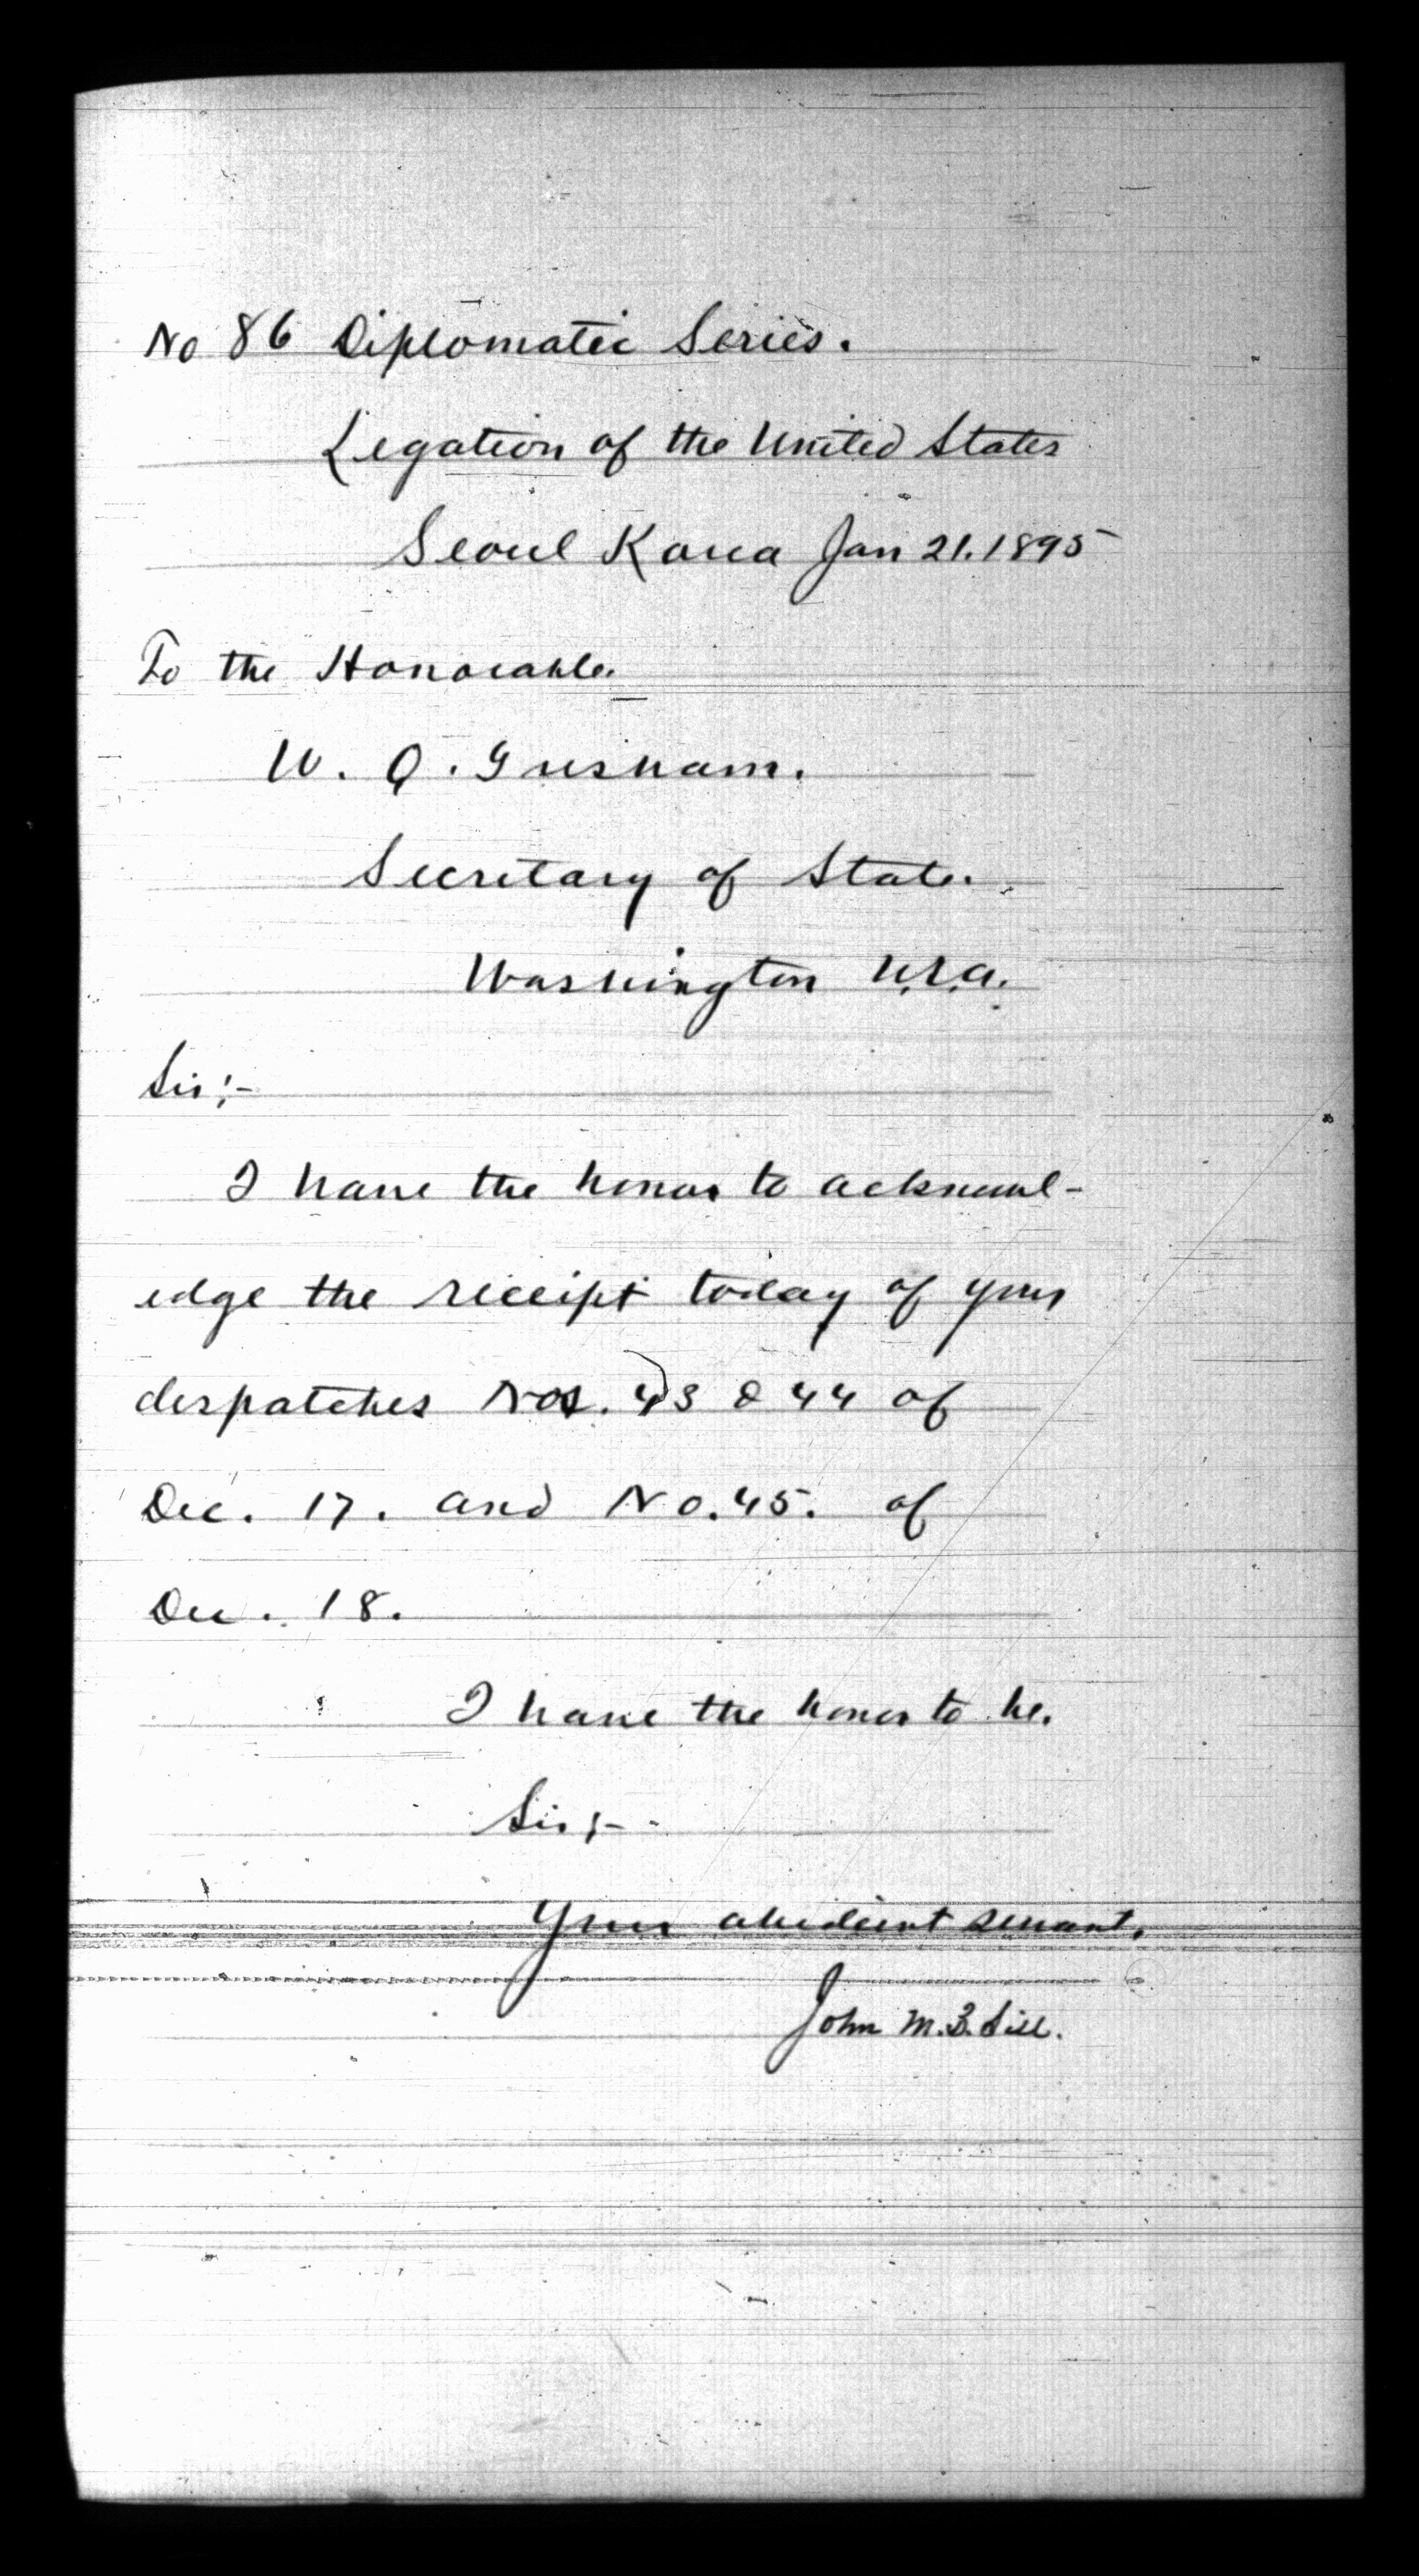 No 86 Diplomatic Series.
Legation of the United States
Seoul Korea Jan 21. 1895
To the Honorable
W. Q. Gresham.
Secretary of State.
Washington U.S.A.
Sir:-
I have the honor to acknowl-
edge the receipt today of your
despatches Nos. 43 & 44 of
Dec. 17. and No. 45. of
Dec. 18.
I have the honor to be.
Sir;-
Your obedient servant.
John M. B. Sill.